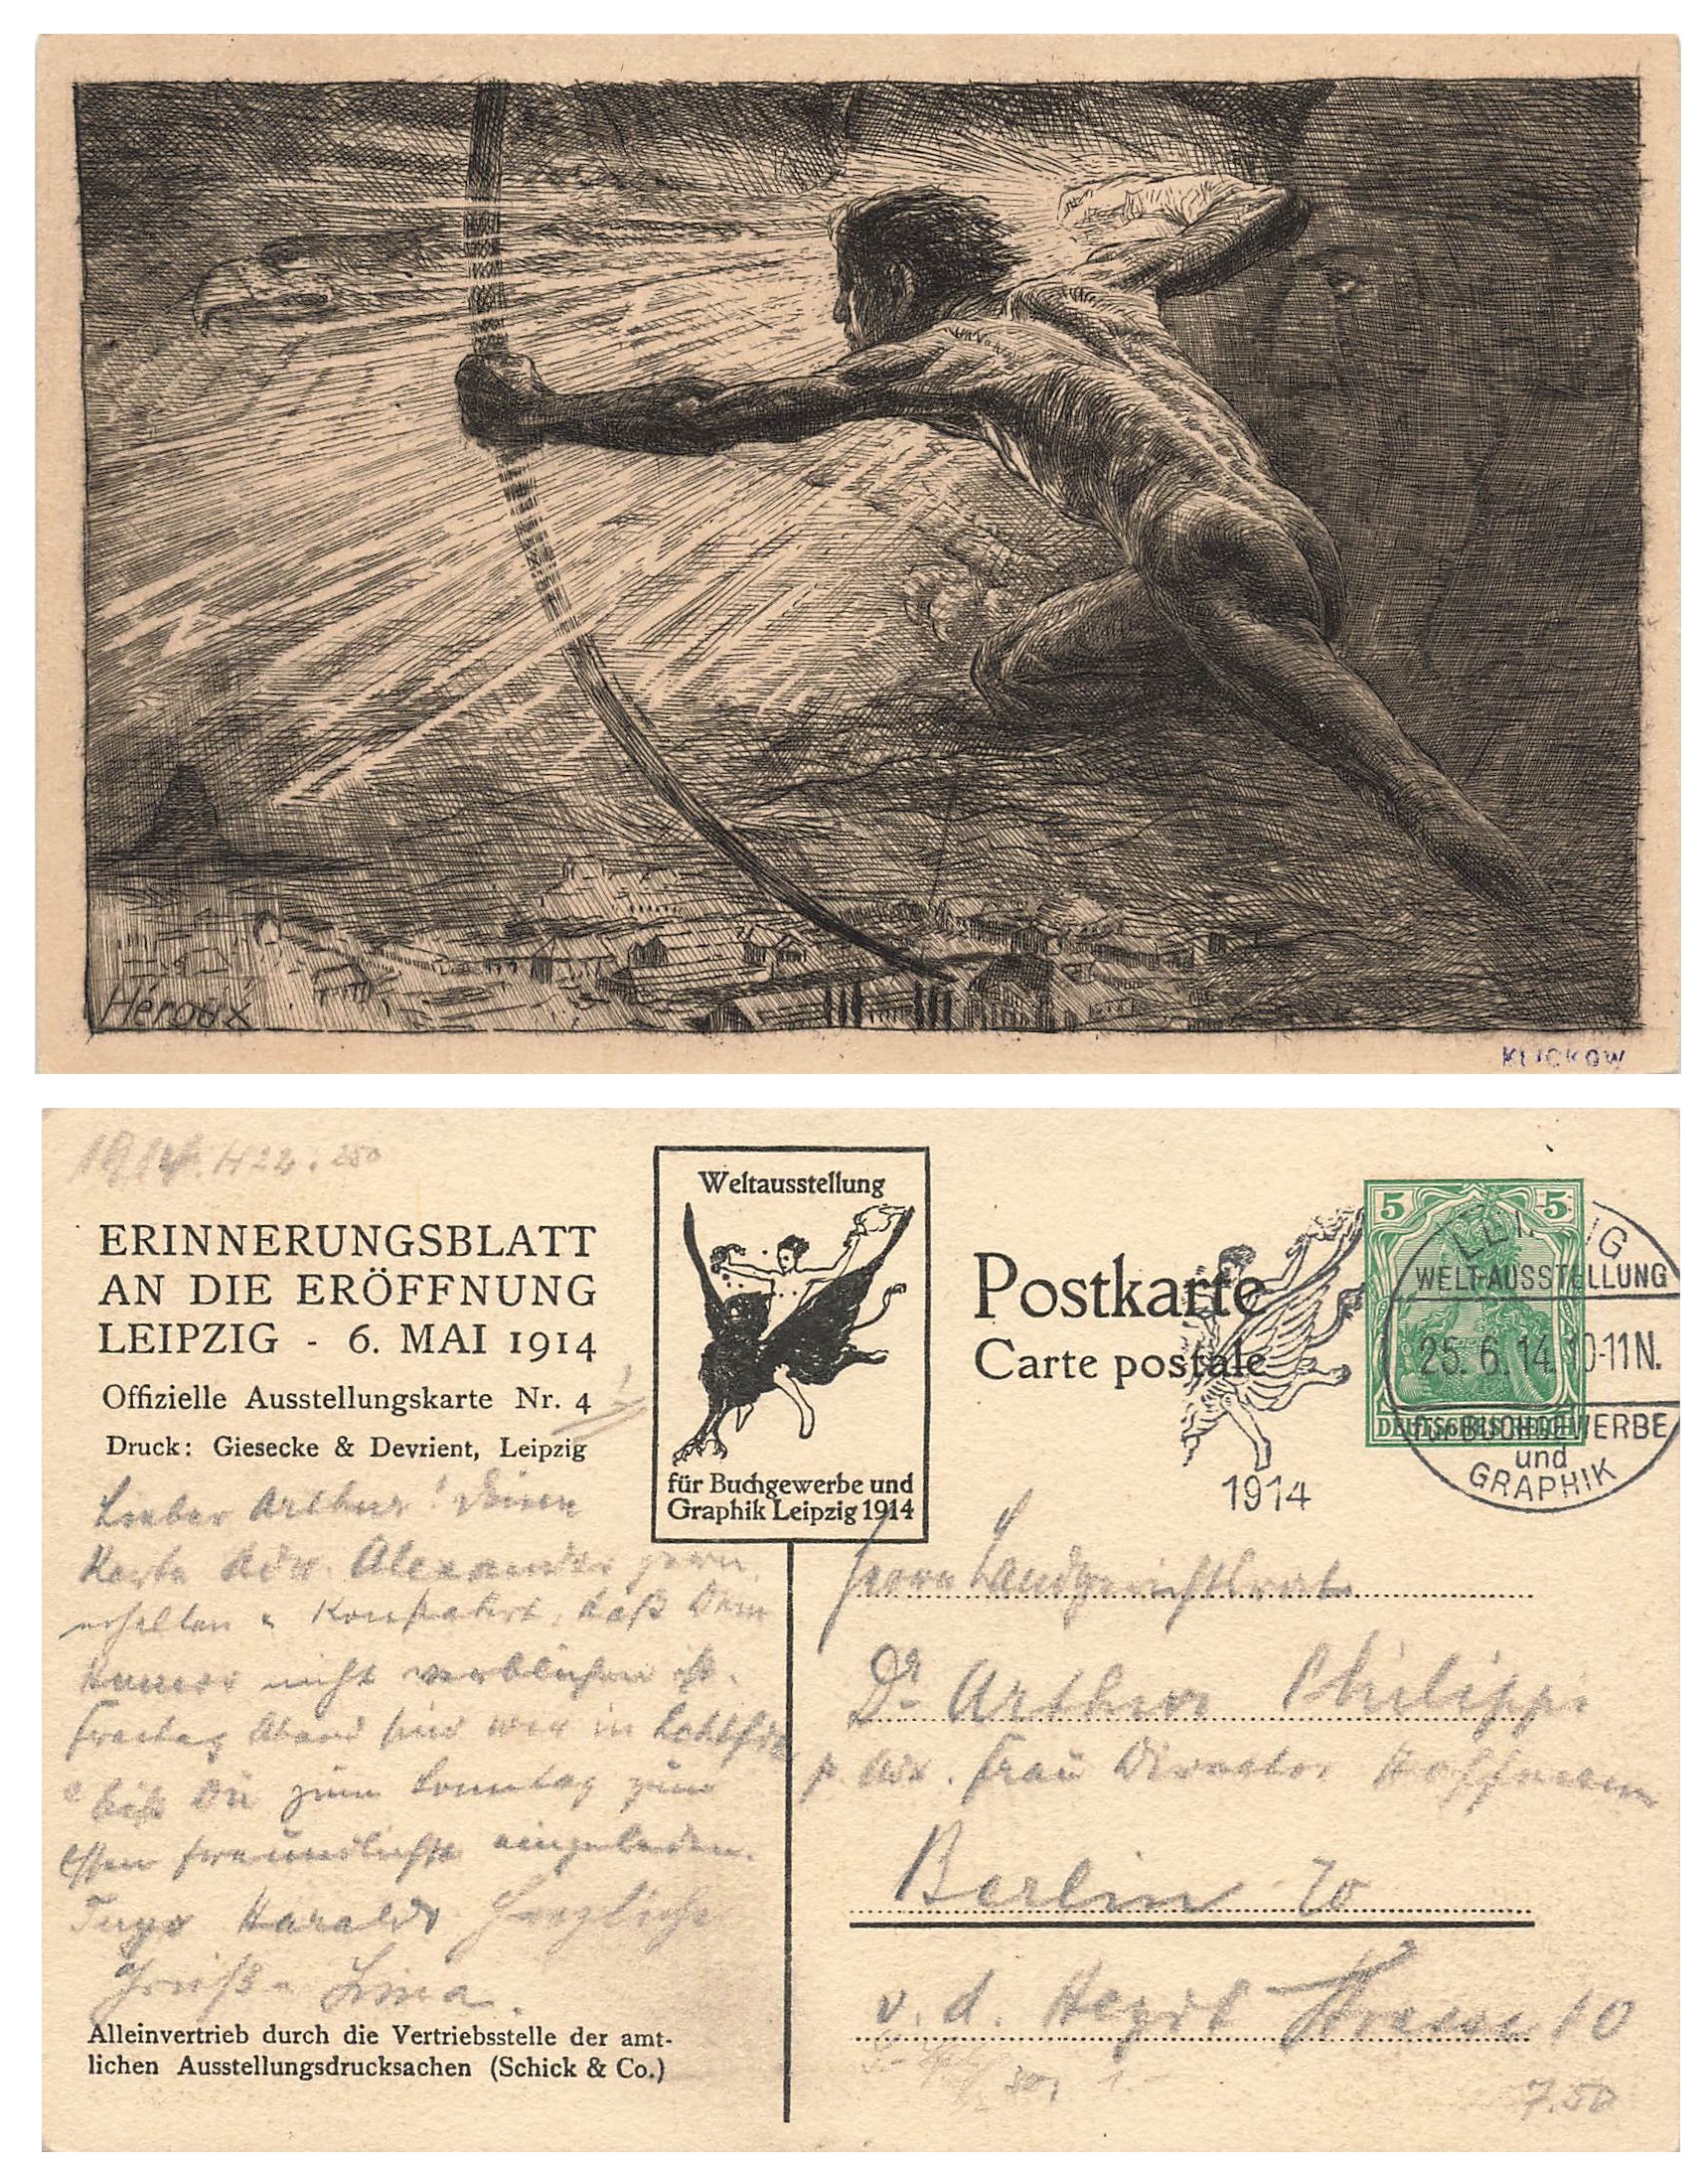 Héroux
KLICKOW
1914. H 22. 250
ERINNERUNGSBLATT
AN DIE ERÖFFNUNG
LEIPZIG - 6. MAI 1914
Offizielle Ausstellungskarte Nr. 4
Druck: Giesecke & Devrient, Leipzig
Weltausstellung
für Buchgewerbe und
Graphik Leipzig 1914
Postkarte
Carte postale
1914
5 5
DEUTSCHES REICH
LEIPZIG
WELT-AUSSTELLUNG
25. 6. 14. 10-11 N.
für BUCHGEWERBE
und
GRAPHIK
Lieber Arthur! Deine
Karte Adr. Alexander gern
erhalten u. konstatirt, daß Dein
Humor nicht verblichen ist.
Freitag Abend sind wir in
bist Du zum Sonntag zum
Essen freundlichst eingeladen.
Harald Herzliche
Grüße
Alleinvertrieb durch die Vertriebsstelle der amt-
lichen Ausstellungsdrucksachen (Schick & Co.)
Herrn Landgerichtsrat
Dr. Arthur Philippi
p. Adr. Frau Director Hoffmann
Berlin
v. d. Heydt Strasse 10
7.50